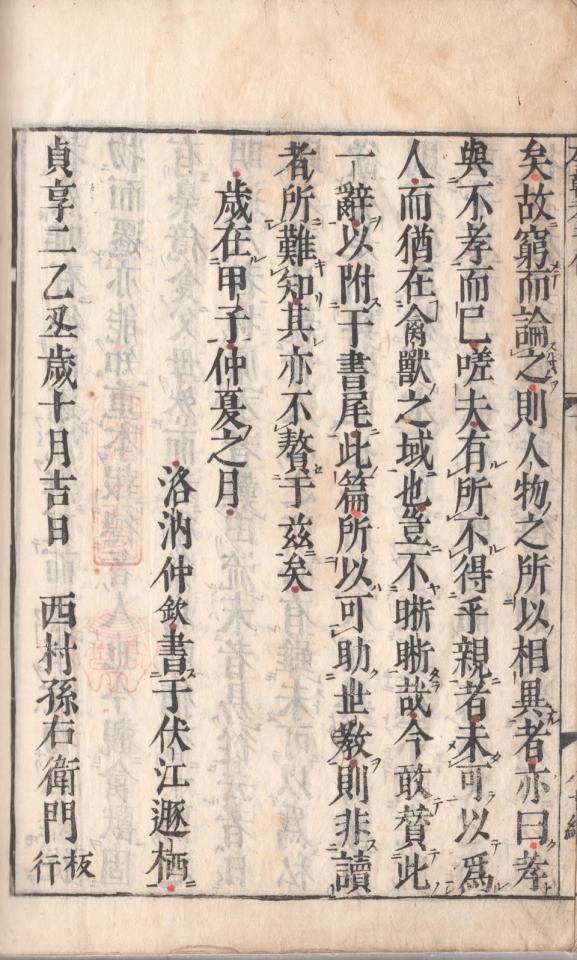 矣故窮而論之則人物之所以相異者亦曰孝
與不孝而已嗟夫有所不得乎親者未可以爲
人而猶在禽獸之域也豈不晣晣哉今敢贅此
一辭以附于書尾此篇所以可助世敎則非讀
者所難知其亦不贅于茲矣
歲在甲子仲夏之月
洛汭仲欽書于伏江遯栖
貞享二乙丑歲十月吉日 西村孫右衛門板行